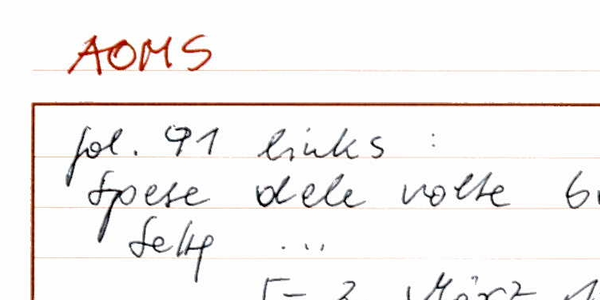 AOMS
fol. 91 links :
Spese dele volte
...
März